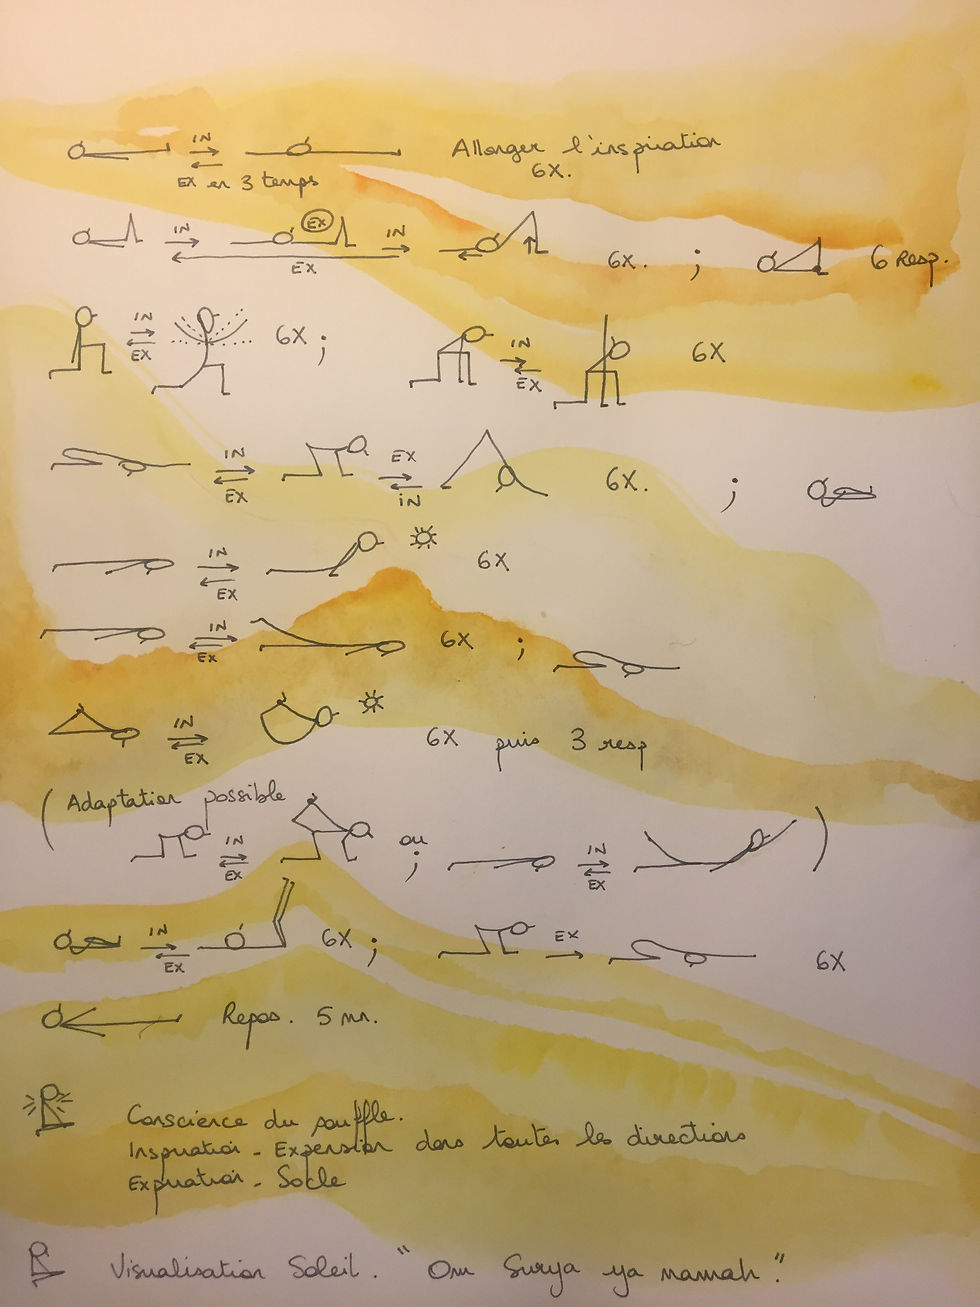 IN Allonger l'inspiration
EX en 3 temps 6X.
EX IN
EX 6X. ; 6 Resp.
IN EX 6X ; IN EX 6X
IN EX EX IN 6X. ;
IN EX 6X
IN EX 6X ;
IN EX 6X puis 3 resp
( Adaptation possible
IN EX ou ; IN EX )
IN EX 6X ; EX 6X
Repos. 5 mn.
Conscience du souffle.
Inspiration - Expension dans toutes les directions
Expiration - Socle
Visualisation Soleil. "Om Surya ya namah."